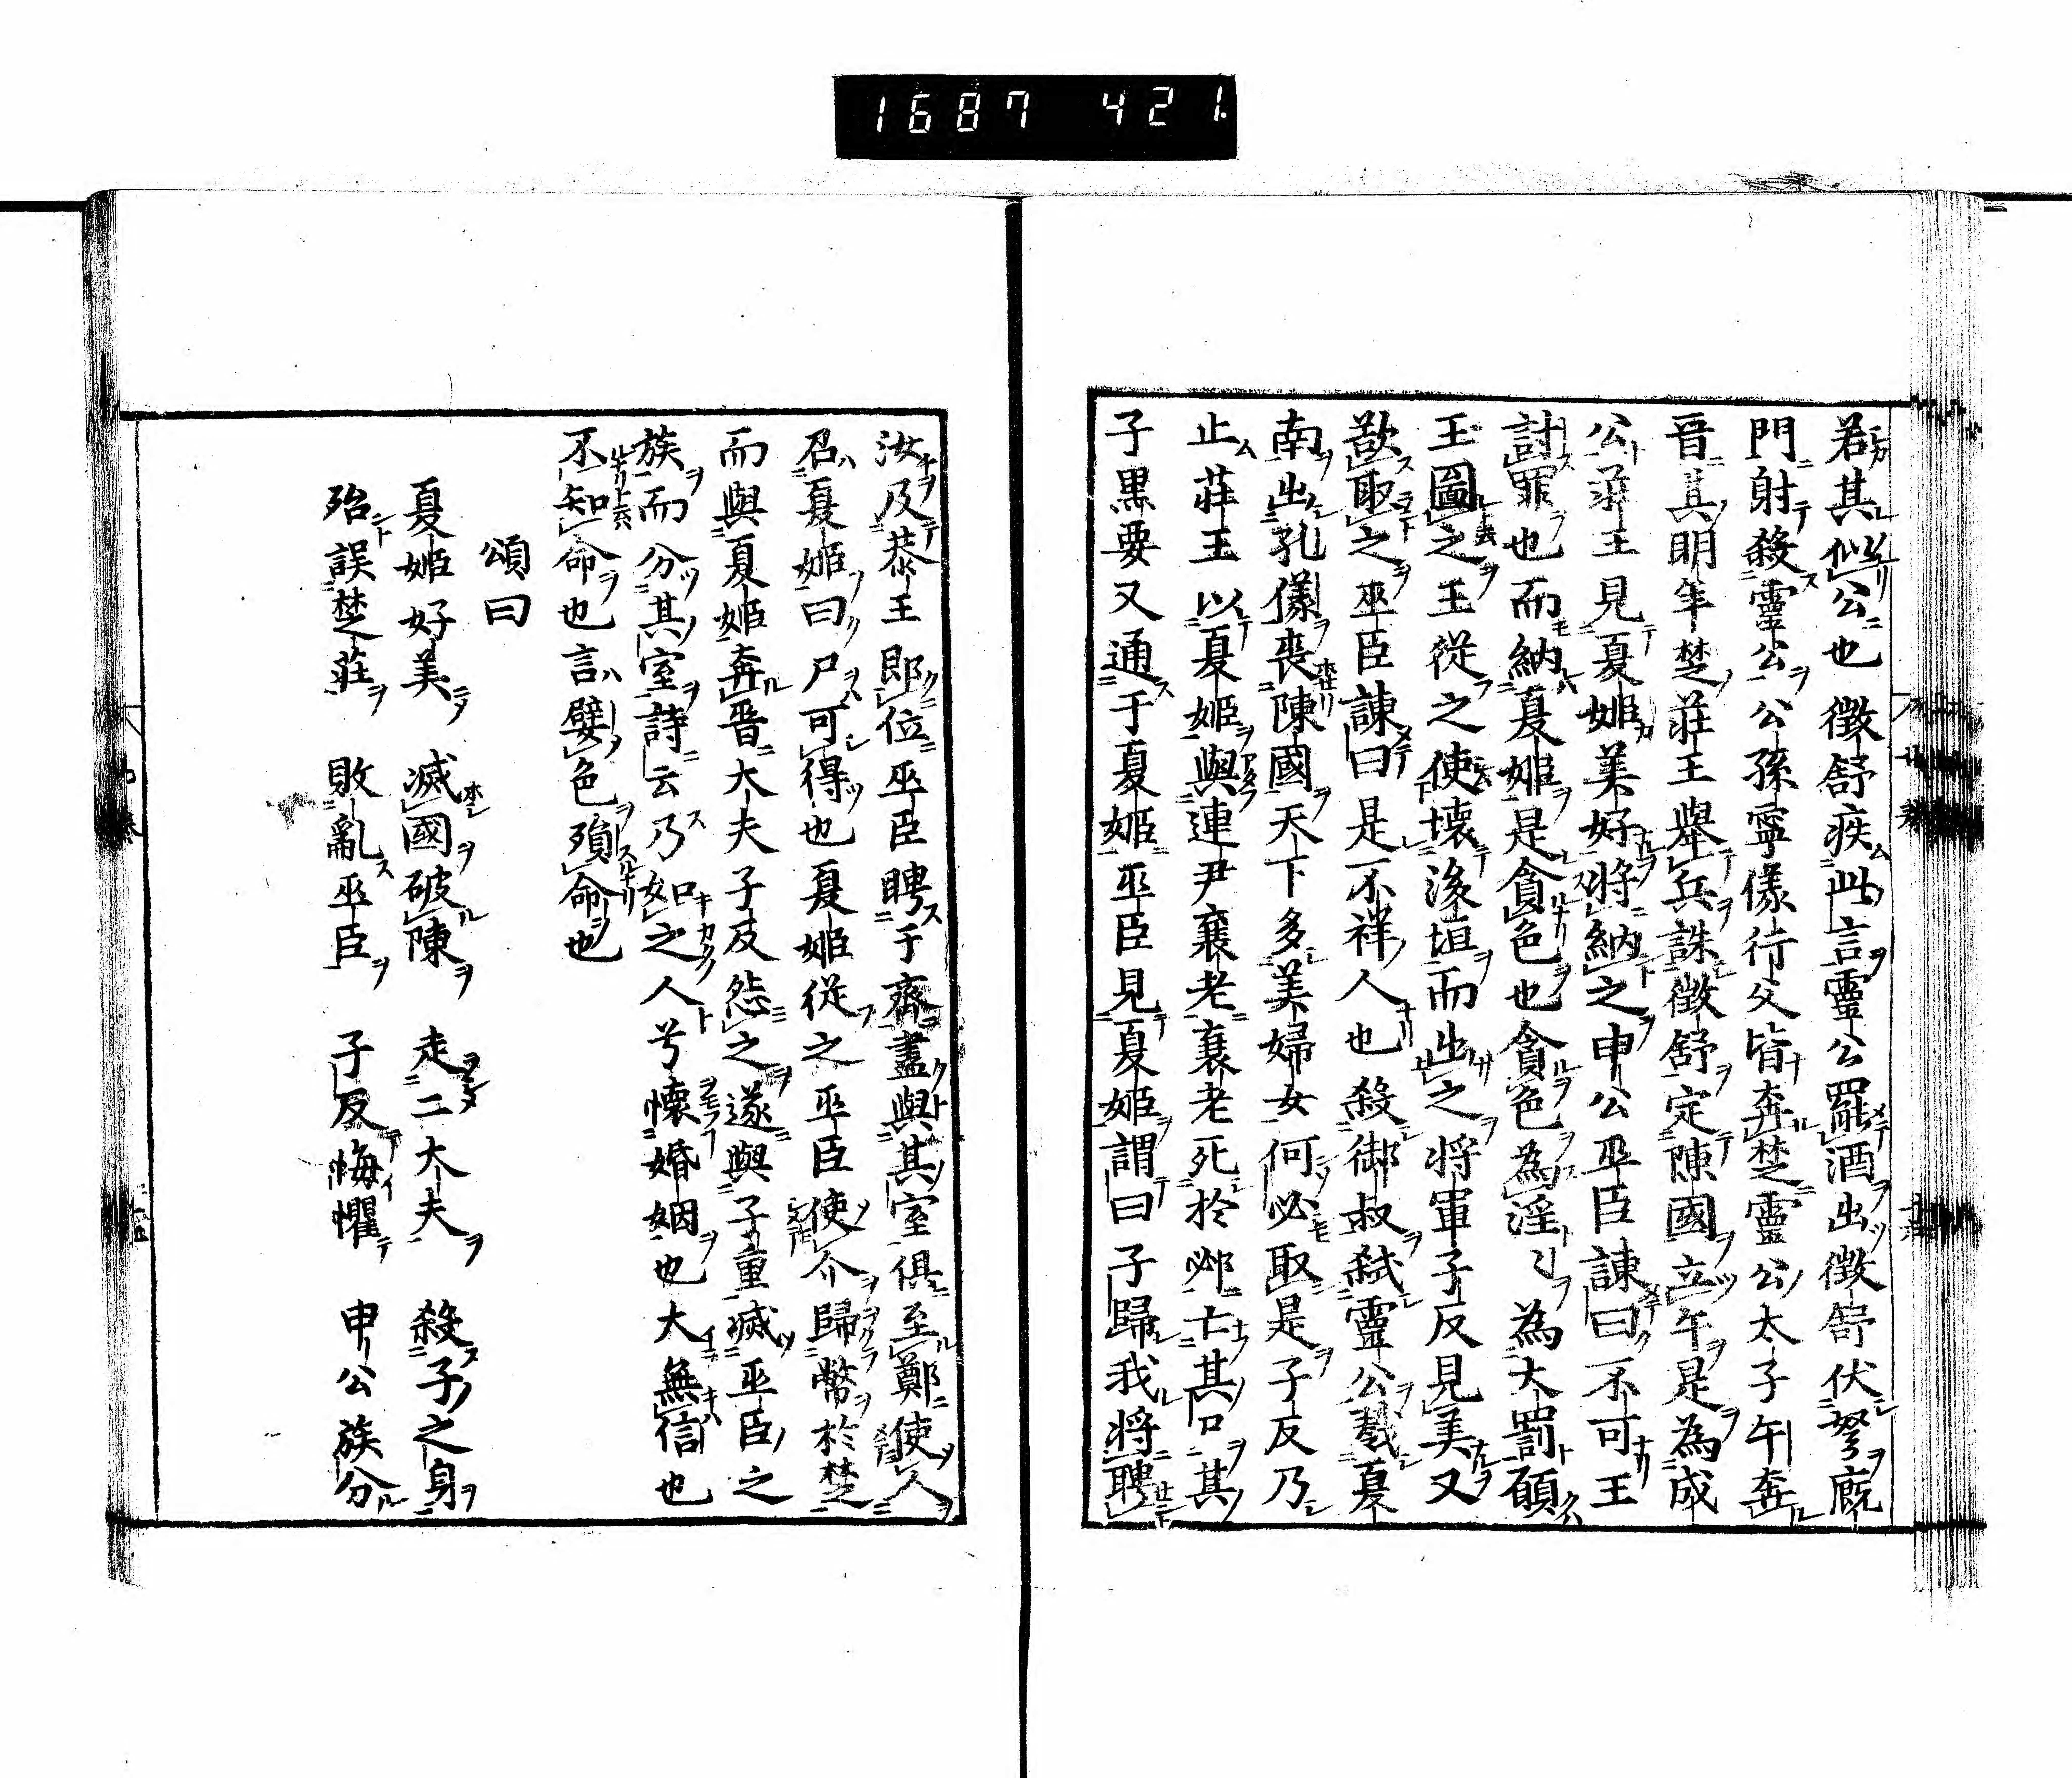 1687 421.
若其似公也徴舒疾此言靈公罷酒出徴舒伏弩廐
門射殺靈公公孫寧儀行父皆奔楚靈公太子午奔
晋其明年楚莊王舉兵誅徴舒定陳國立午是為成
公莊王見夏姫美好将納之申公巫臣諫曰不可王
討罪也而納夏姫是貪色也貪色為淫〻為大罰願
王圖之王從之使壊後垣而出之将軍子反見美又
欲取之巫臣諫曰是不祥人也殺御叔弑靈公戮夏
南出孔儀喪陳國天下多美婦女何必取是子反乃
止莊王以夏姫與連尹襄老襄老死於邲亡其口其
子黒要又通于夏姫巫臣見夏姫謂曰子歸我将聘
汝及恭王即位巫臣聘于齊盡與其室倶至鄭使人
召夏姫曰尸可得也夏姫從之巫臣使介歸幣於楚
而與夏姫奔晋大夫子反怨之遂與子重滅巫臣之
族而分其室詩云乃如之人兮懐婚姻也大無信也
不知命也言嬖色殞命也
頌曰
夏姫好美 滅國破陳 走二大夫 殺子之身
殆誤楚莊 敗亂巫臣 子反悔懼 申公族分